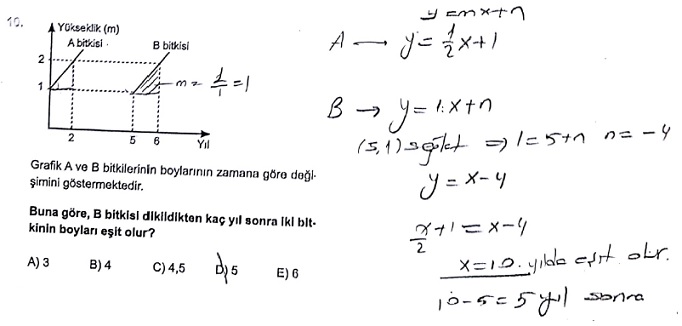 10.
Yükseklik (m)
A bitkisi
B bitkisi
2
1
2
5
6
Yıl
m = 1/1 = 1
Grafik A ve B bitkilerinin boylarının zamana göre deği-
şimini göstermektedir.
Buna göre, B bitkisi dikildikten kaç yıl sonra iki bit-
kinin boyları eşit olur?
A) 3 B) 4 C) 4,5 D) 5 E) 6
y = mx+n
A → y = 1/2 x+1
B → y = 1.x+n
(5,1) sağlat ⇒ 1=5+n n = -4
y = x-4
x/2 + 1 = x-4
x=10. yılda eşit olur.
10-5=5 yıl sonra